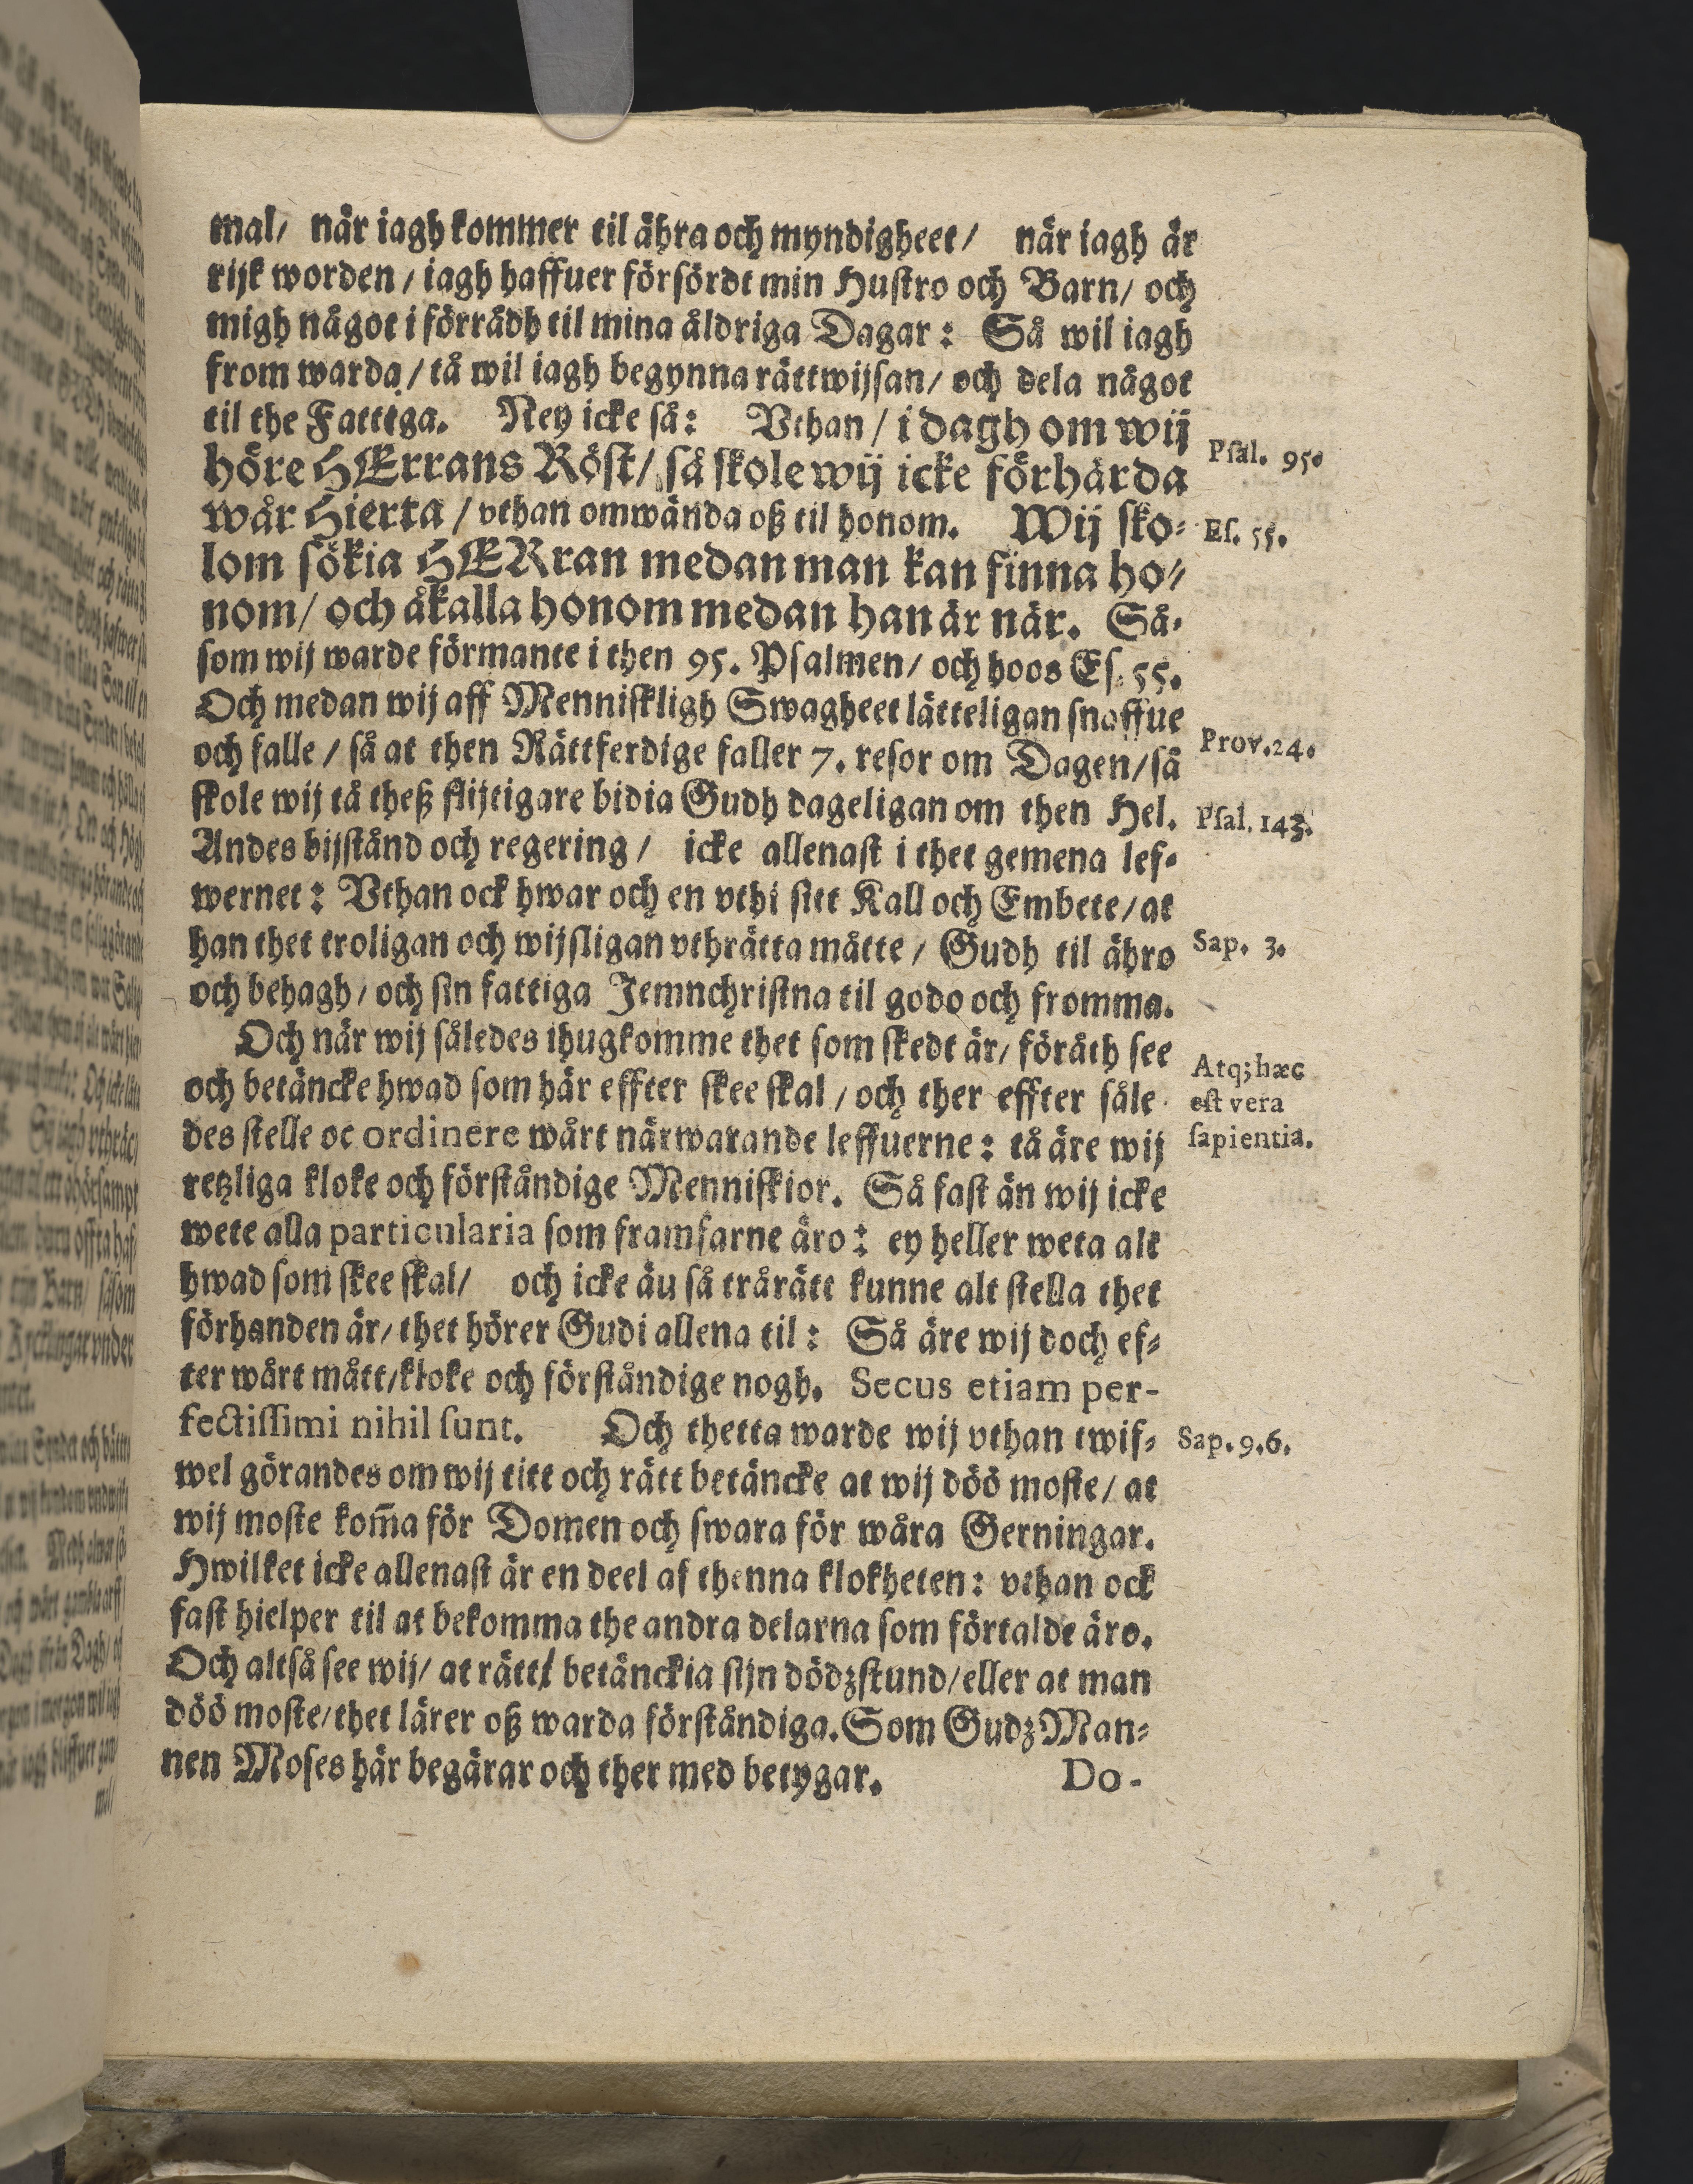 mal/ når iagh kommer til ähra och myndigheet/ när iagh är
rijk worden/ iagh haffuer försördt min Hustro och Barn/ och
migh något i förrådh til mina åldriga Dagar: Så wil iagh
from warda/ tå wil iagh begynna rättwijsan/ och dela något
til the Fattiga. Ney icke så: Vthan/ i dagh om wij
höre HErrans Röst/ så skole wij icke förhärda
wår Hierta/ vthan omwända oß til honom. Wij sko-
lom sökia HERran medan man kan finna ho-
nom/ och åkalla honom medan han är när. Så-
som wij warde förmante i then 95. Psalmen/ och hoos Es. 55.
Och medan wij aff Menniskligh Swagheet lätteligan snaffue
och falle/ så at then Rättferdige faller 7. resor om Dagen/ så
skole wij tå theß flijtigare bidia Gudh dageligan om then Hel.
Andes bijstånd och regering/ icke allenast i thet gemena lef-
wernet: Vthan ock hwar och en vthi sitt Kall och Embete/ at
han thet troligan och wijsligan vthrätta måtte/ Gudh til ähro
och behagh/ och sin fattiga Jemnchristna til godo och fromma.
Och når wij således ihugkomme thet som skedt är/ föråth see
och betäncke hwad som här effter skee skal/ och ther effter såle
des stelle oc ordinere wårt närwarande leffuerne: tå äre wij
retzliga kloke och förståndige Menniskior. Så fast än wij icke
wete alla particularia som framfarne äro: ey heller weta alt
hwad som skee skal/ och icke äu så trårätt kunne alt stella thet
förhanden är/ thet hörer Gudi allena til: Så äre wij doch ef-
ter wårt mått/ kloke och förståndige nogh. Secus etiam per-
fectissimi nihil sunt. Och thetta warde wij vthan twif-
wel görandes om wij titt och rätt betäncke at wij döö moste/ at
wij moste kom̃a för Domen och swara för wåra Gerningar.
Hwilket icke allenast är en deel af thenna klokheten: vthan ock
fast hielper til at bekomma the andra delarna som förtalde äro.
Och altså see wij/ at rätt betänckia sijn dödzstund/ eller at man
döö moste/ thet lärer oß warda förståndiga. Som Gudz Man-
nen Moses här begärar och ther med betygar.
Do-
Psal. 95.
Es. 55.
Prov. 24.
Psal. 143.
Sap. 3.
Atq; hæc
est vera
sapientia.
Sap. 9.6.